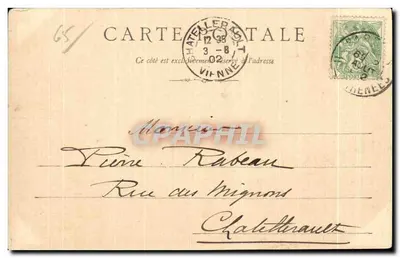 65
CARTE POSTALE
Ce côté est exclusivement réservé à l'adresse
CHATELLERAULT
12 35
3 - 8
02
VIENNE
Monsieur
Pierre Rabeau
Rue des Mignons
Chatellerault
CARTES POSTALES